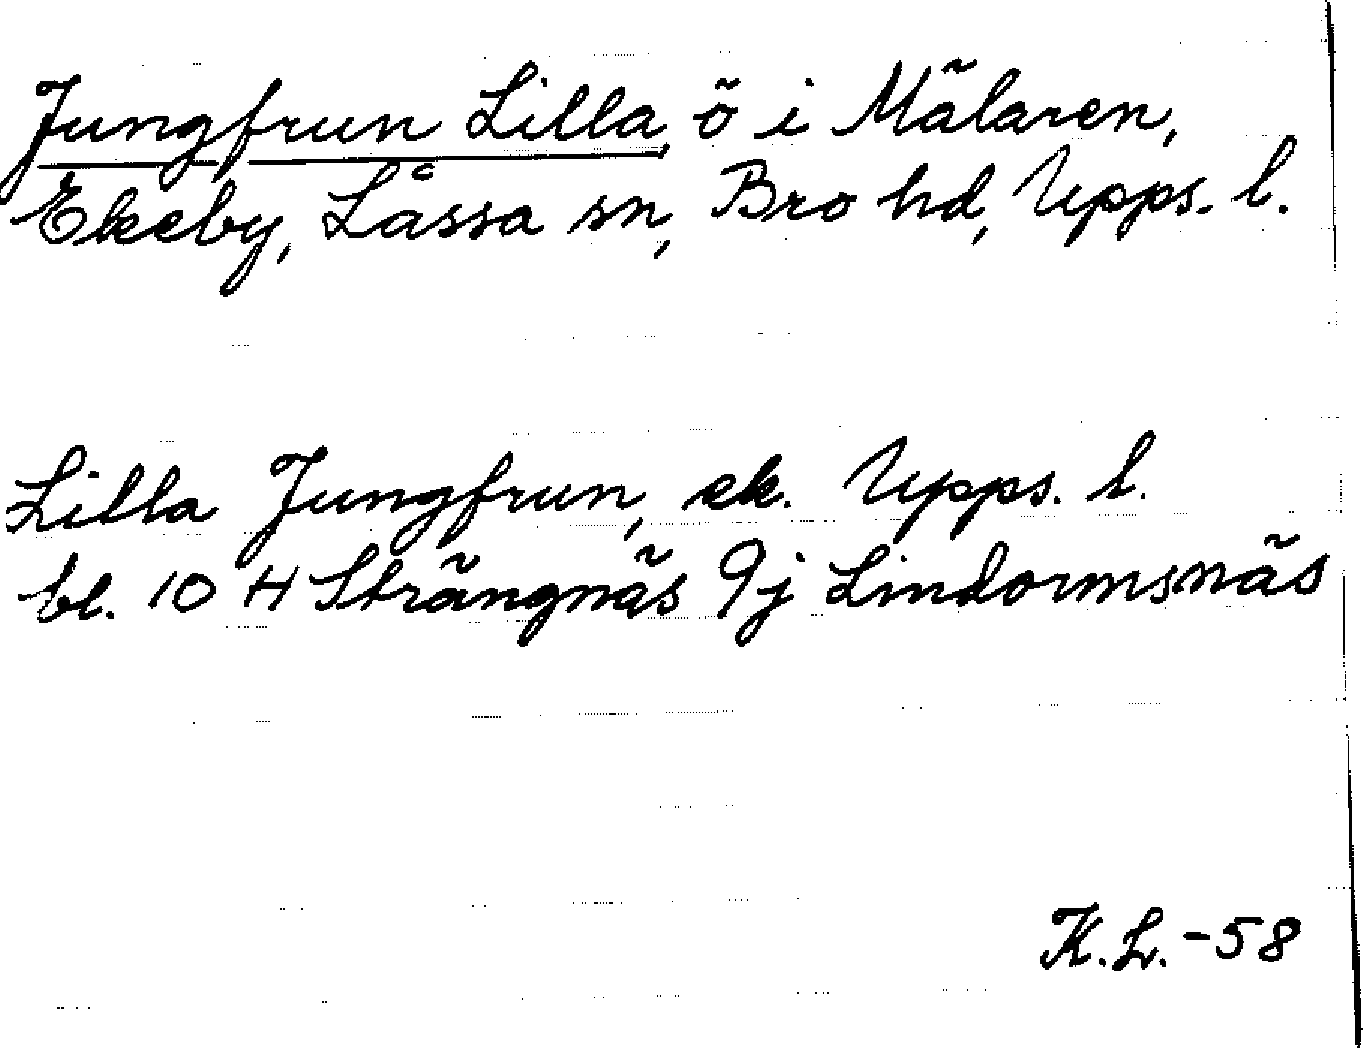 Jungfrun Lilla, ö i Mälaren,
Ekeby, Låssa sn, Bro hd, Upps. l.
Lilla Jungfrun, ek. Upps. l.
bl. 10 H Strängnäs 9j Lindormsnäs
K.L. -58